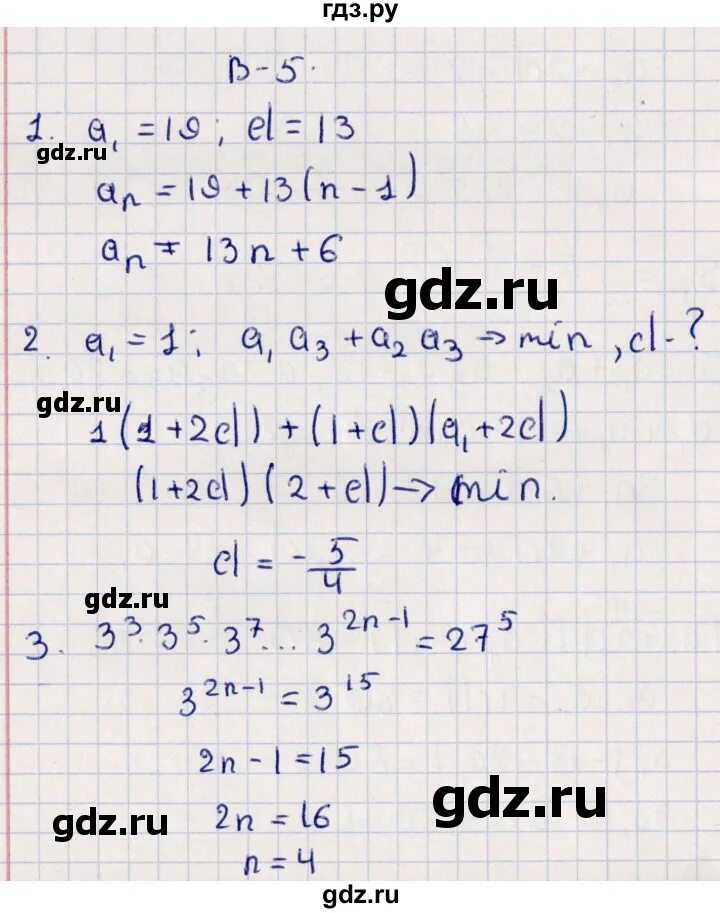 гдз.ру
В-5.
1. a₁ = 19; d = 13
gdz.ru
aₙ = 19 + 13(n - 1)
aₙ = 13n + 6
gdz.ru
2. a₁ = 1; a₁ a₃ + a₂ a₃ → min, d - ?
gdz.ru
1(1 + 2d) + (1 + d)(a₁ + 2d)
(1 + 2d)(2 + d) → min.
d = - 5/4
gdz.ru
3. 3³ · 3⁵ · 3⁷ ... 3²ⁿ⁻¹ = 27⁵
3²ⁿ⁻¹ = 3¹⁵
2n - 1 = 15
gdz.ru
2n = 16
gdz.ru
n = 4
gdz.ru